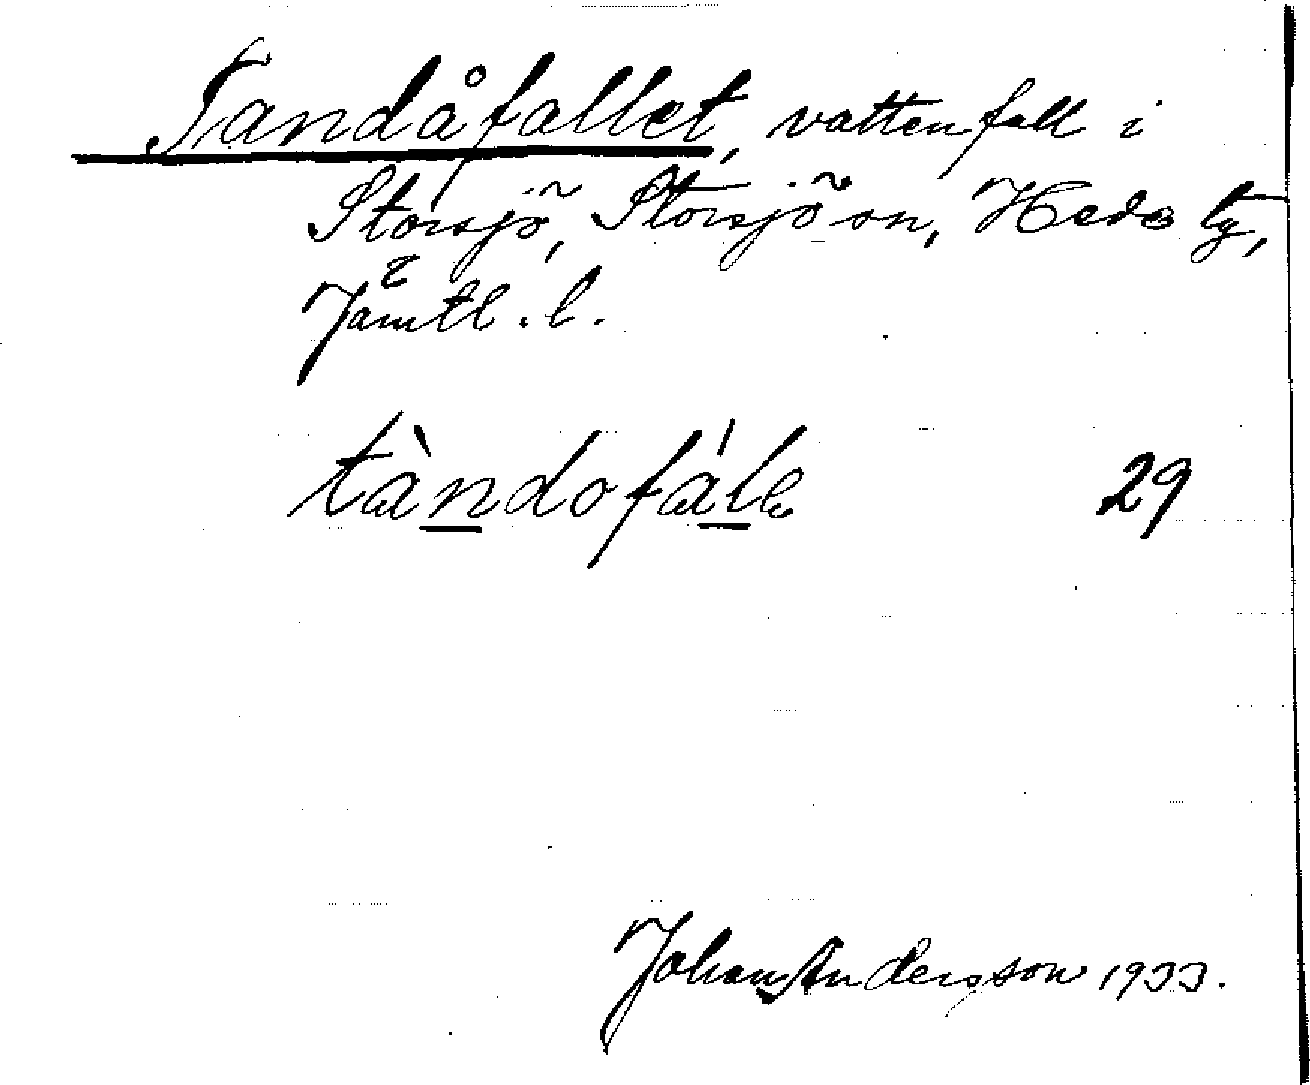 Tandåfallet, vattenfall i
Storsjö, Storsjö sn, Hede tg,
Jämtl. l.
tàndofále 29
Johan Andersson 1933.